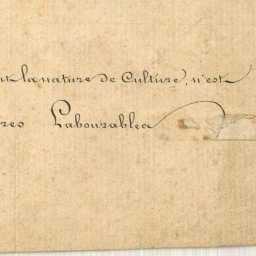 nt la nature de Culture, n'est
res Labourables